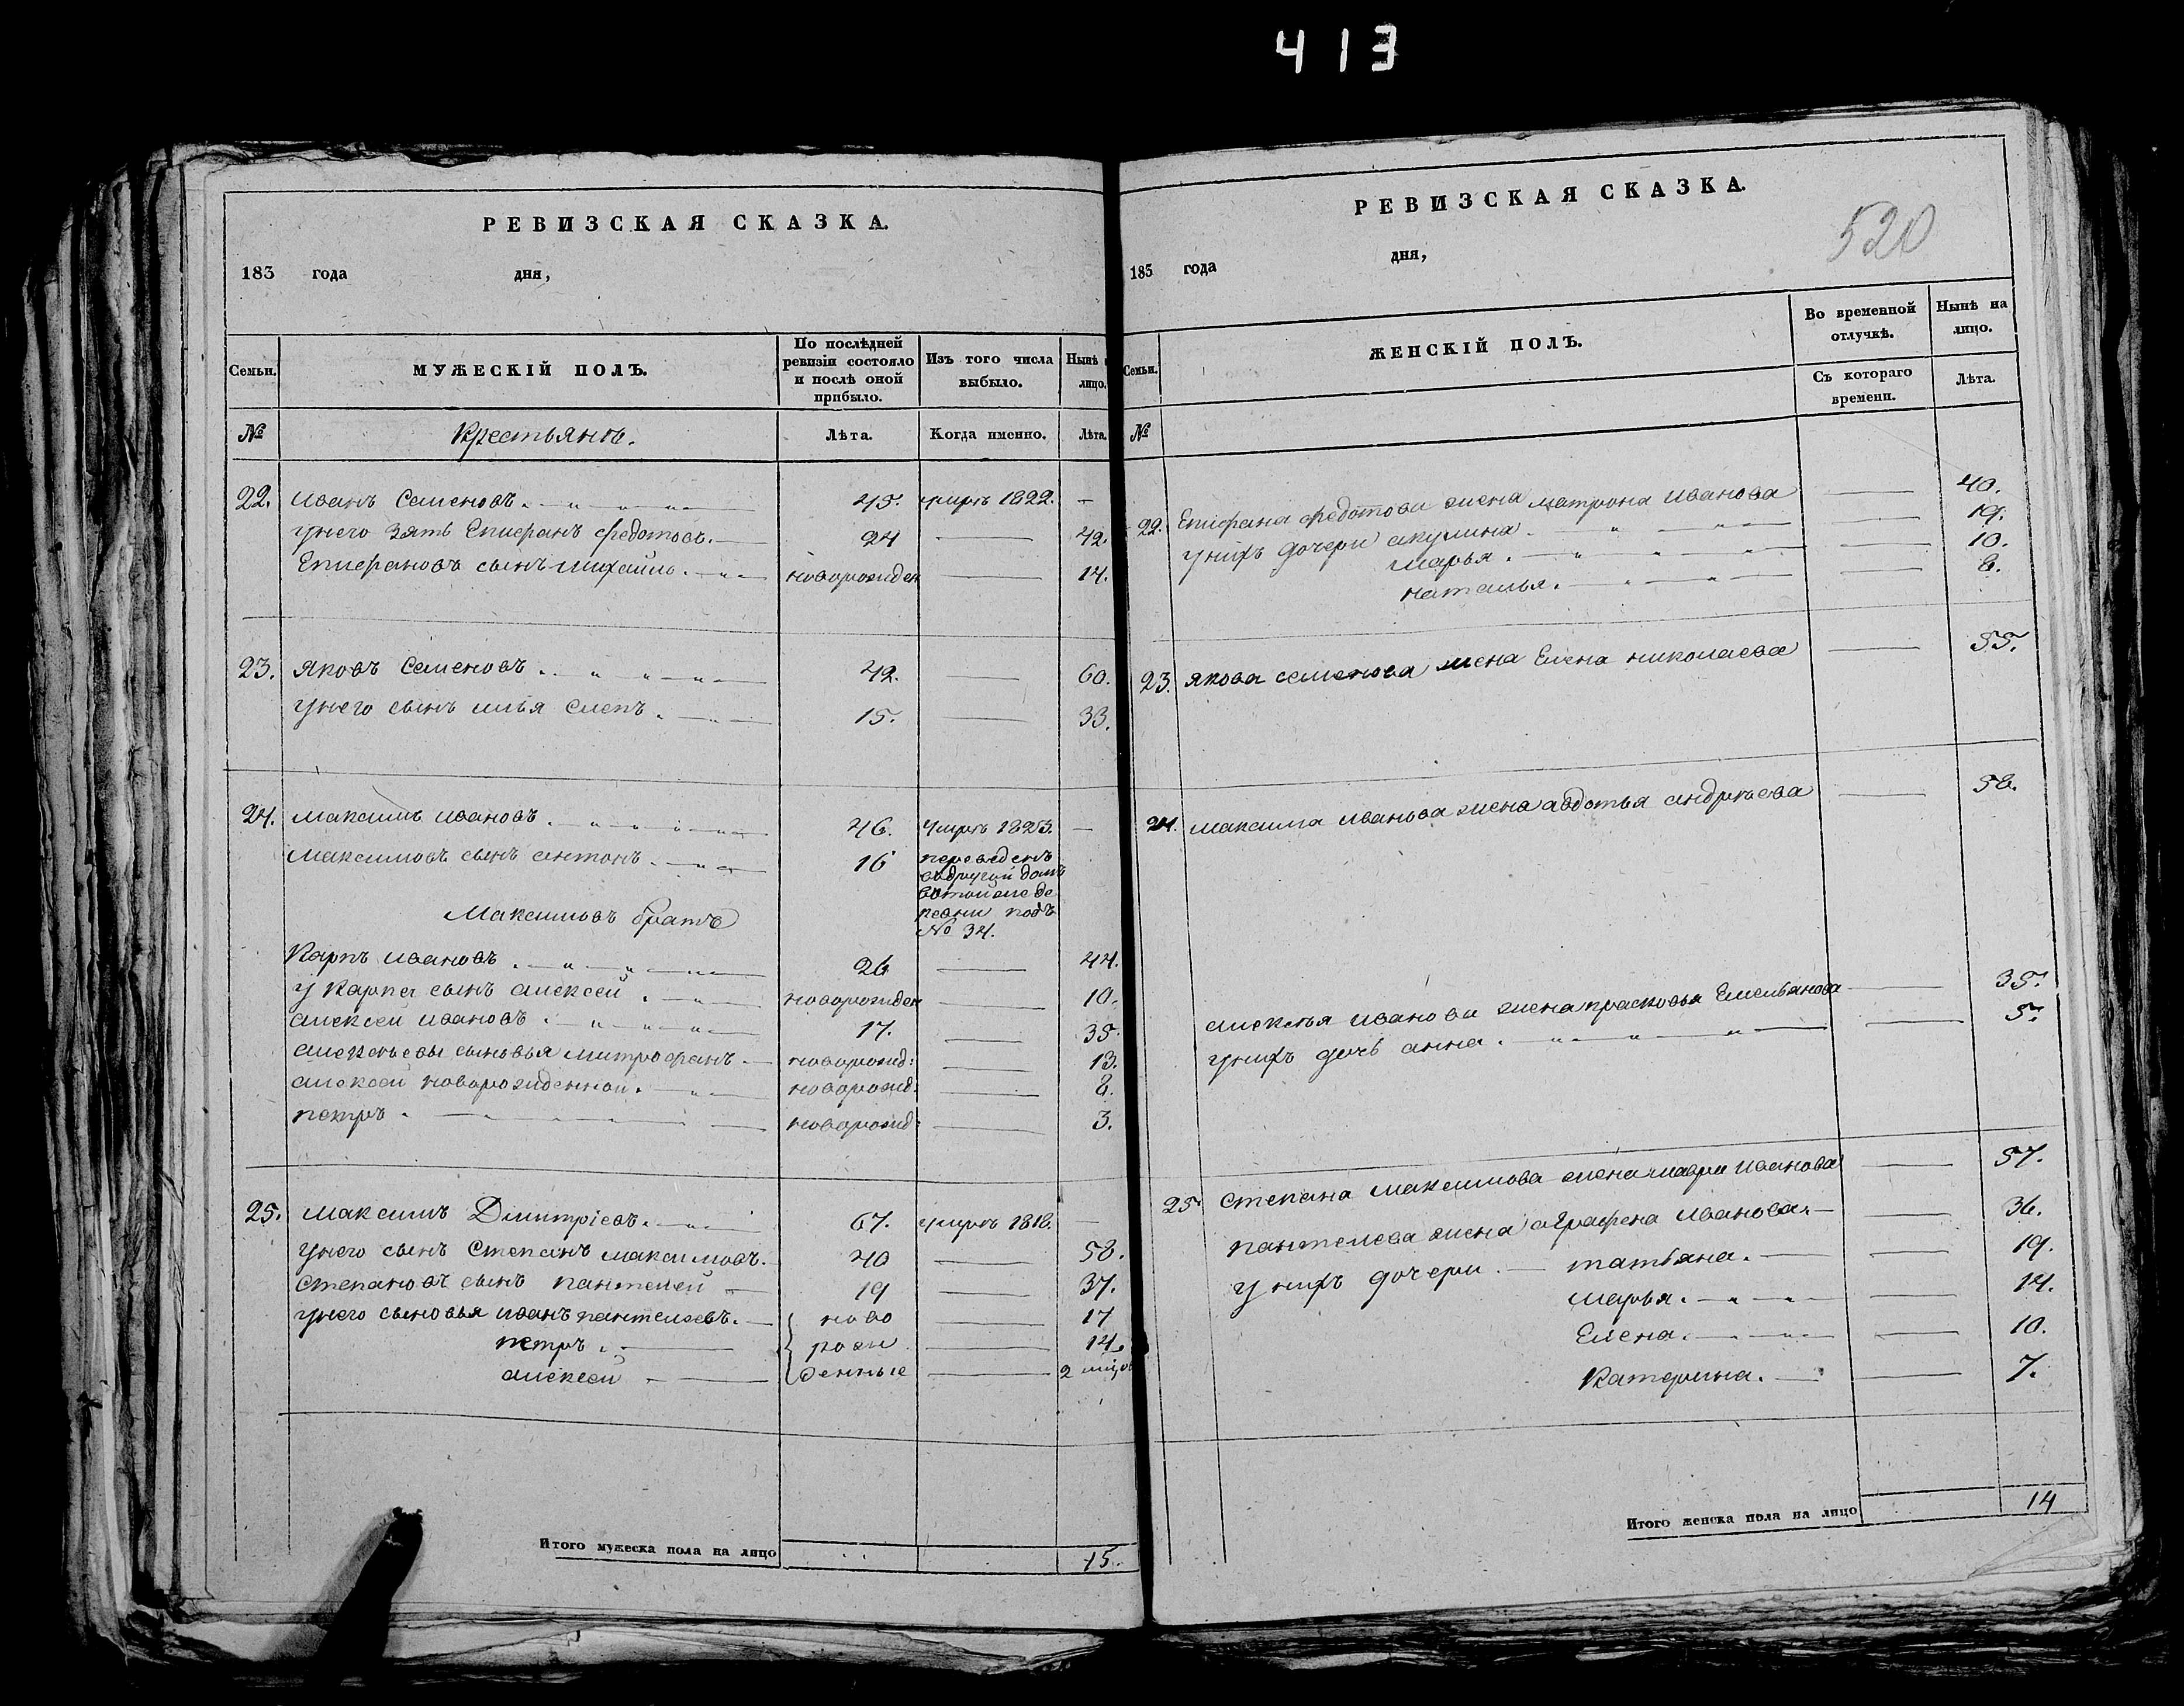 413
РЕВИЗСКАЯ СКАЗКА.
183 года дня,
Семьи.
МУЖЕСКІЙ ПОЛЪ.
По послѣдней ревизіи состояло и послѣ оной прибыло.
Изъ того числа выбыло.
Нынѣ лицо.
№
Крестьянъ.
Лѣта.
Когда именно.
Лѣта.
22. Иванъ Семеновъ. 45. умеръ 1822. —
у него зять Епифанъ Федотовъ. 24 — 42.
Епифановъ сынъ Михайло. новорожден — 14.
23. Яковъ Семеновъ. 42. — 60.
у него сынъ Илья слепъ. 15. — 33.
24. Максимъ Ивановъ. 46. умеръ 1823. —
Максимовъ сынъ Антонъ. 16 переведенъ
въ другий домъ
в той же де
ревни подъ
№ 34.
Максимовъ братъ
Карпъ Ивановъ 26 — 44.
у Карпа сынъ Алексей. новорожден — 10.
Алексеи Ивановъ. 17. — 35.
Алексѣевы сыновья Митрофанъ. новорожд: — 13.
Алексей новорожденной. новорожд: — 8.
Петръ. новорожд: — 3.
25. Максимъ Димитріевъ. 67. умеръ 1818. —
у него сынъ Степанъ Максимовъ. 40 — 58.
Степановъ сынъ Пантелей 19 — 37.
у него сыновья Иванъ Пантелеевъ. ново — 17
Петръ. рож — 14.
Алексей денные — 2
Итого мужеска пола на лицо 15.
РЕВИЗСКАЯ СКАЗКА.
520
183 года дня,
Семьи.
ЖЕНСКІЙ ПОЛЪ.
Во временной отлучкѣ.
Нынѣ на лицо.
Съ котораго времени.
Лѣта.
№
22. Епифана Федотова жена Матрона Иванова — 40.
у нихъ дочери Акулина. — 19.
Марья. — 10.
Наталья. — 8.
23. Якова Семенова жена Елена Николаева — 55.
24. Максима Иванова жена Авдотья Андрѣева — 58.
Алексѣя Иванова жена Прасковья Емельянова — 35.
у нихъ дочь Анна. — 5.
25. Степана Максимова жена Мавра Иванова — 57.
Пантелея жена Аграфена Иванова. — 36.
у нихъ дочери. — Татьяна. — 19.
Марья. — 14.
Елена. — 10.
Катерина. — 7.
Итого женска пола на лицо 14